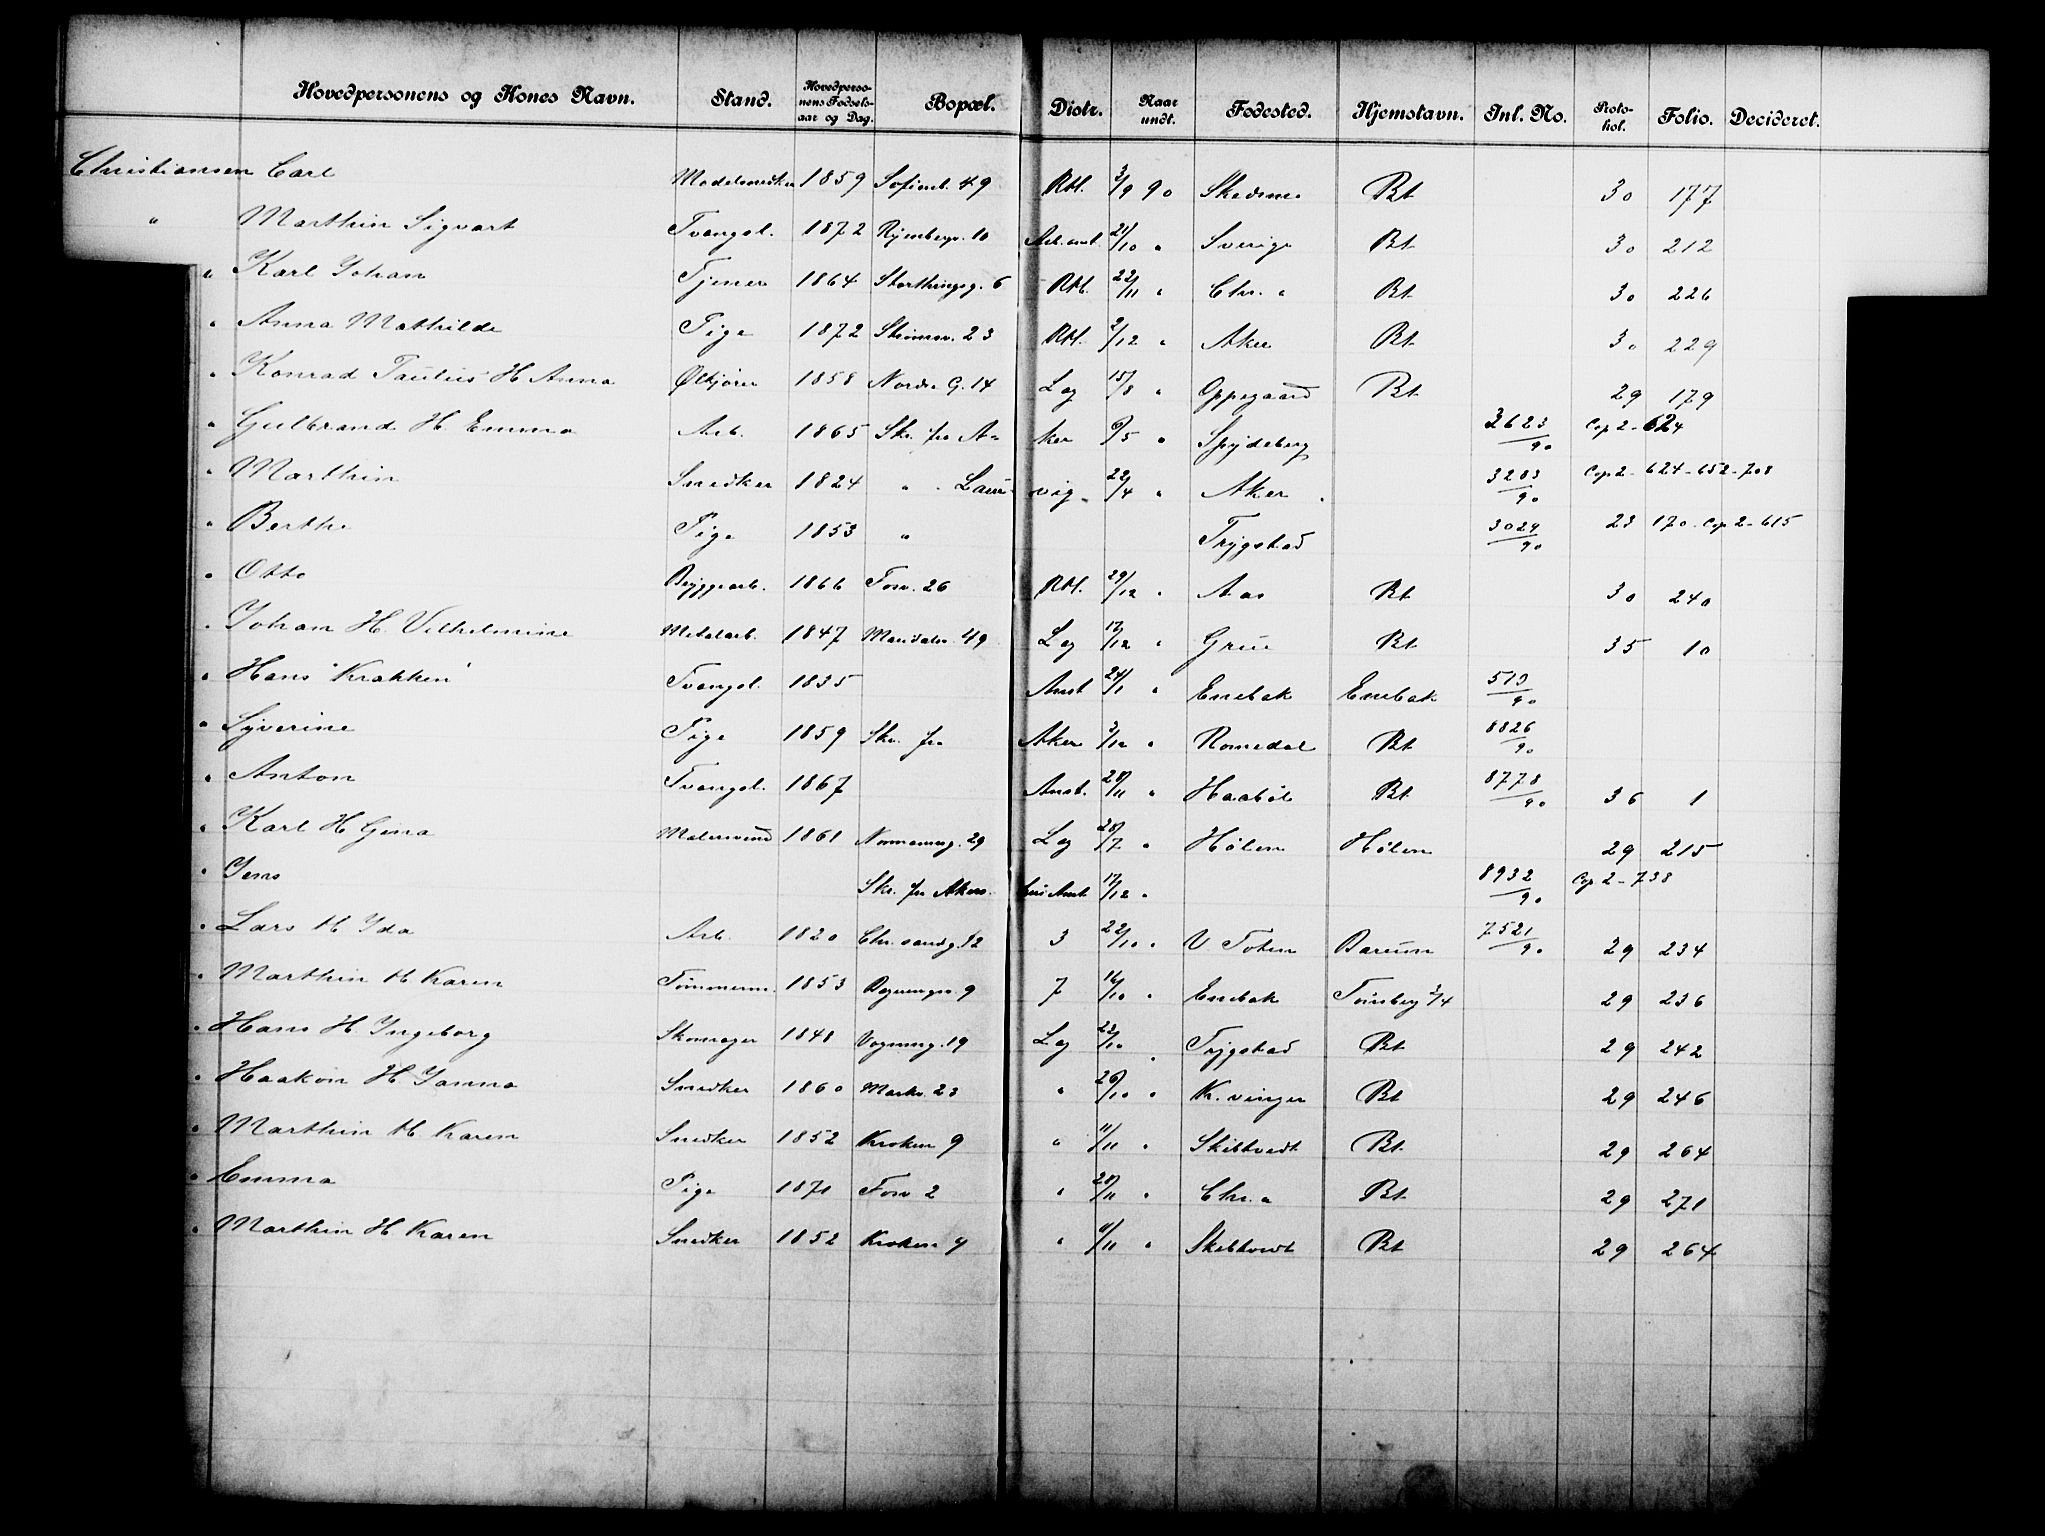 Hovedpersonens og Kones Navn. Stand. Hovedpersonens Fødselsaar og Dag. Bopæl. Distr. Naar undt. Fødested. Hjemstavn. Inl. No. Protokol. Folio. Decideret.
Christiansen Carl Modelsnedker 1859 Sofienb. 49 Rtl. 3/9 90 Skedsmo Bt 30 177
" Marthin Sigvart Tvangsl. 1872 10 21/10 " Sverige Bt 30 212
" Karl Johan Tjener 1864 Storthingsg. 6 Rtl. 22/11 " Chr. a Bt 30 226
" Anna Mathilde Pige 1872 23 Rtl. 2/12 " Aker Bt 30 229
" Konrad Paulus H Anna Ølkjører 1858 Nordre G. 14 Lag 15/8 " Oppegaard Bt 29 179
" Gulbrand H Emma Arb. 1865 Skr. fra Aker 6/5 " Spydeberg 3623/90 Cop 2 - 624
" Marthin Snedker 1824 " - Laurvig " 22/4 " Aker 3203/90 Cop 2 - 624 - 652 - 708
" Berthe Pige 1853 " Trygstad 3029/90 23 170 - Cop 2 - 615
" Otto Bryggearb. 1866 Fosv. 26 Rtl. 29/12 " Aas Bt 30 240
" Johan H. Vilhelmine Metalarb. 1847 Maridalsv. 49 Lag 12/12 " Grue Bt 35 10
" Hans "Krakken" Tvangsl. 1835 Anst 24/1 " Enebak Enebak 510/90
" Syverine Pige 1859 Skr. fra Aker 3/12 " Romedal Bt 8826/90
" Anton Tvangsl. 1867 Anst. 28/11 " Haabøl Bt 8778/90 36 1
" Karl H Gina Malersvend 1861 Normannsg. 29 Lag 28/7 " Hølen Hølen 29 215
" Jens Skr. fra Akers Anst 17/12 " 8932/90 Cop 2 - 738
" Lars H Ida Arb. 1820 Chr. sandg. 12 3 22/10 " V. Toten Barum 7521/90 29 234
" Marthin H. Karen Tømmerm. 1853 9 7 16/10 " Enebak Tønsberg 3/4 29 236
" Hans H Ingeborg Skomager 1848 Vognmg. 19 Lag 23/10 " Trygstad Bt 29 242
" Haakon H Janna Snedker 1860 Markv. 23 " 26/10 " K. vinger Bt 29 246
" Marthin H. Karen Snedker 1852 Kroken 9 " 11/11 " Skibtvedt Bt 29 264
" Emma Pige 1871 Fosv 2 " 28/11 " Chr. a Bt 29 271
" Marthin H Karen Snedker 1852 Kroken 9 " 11/11 " Skibtvedt Bt 29 264